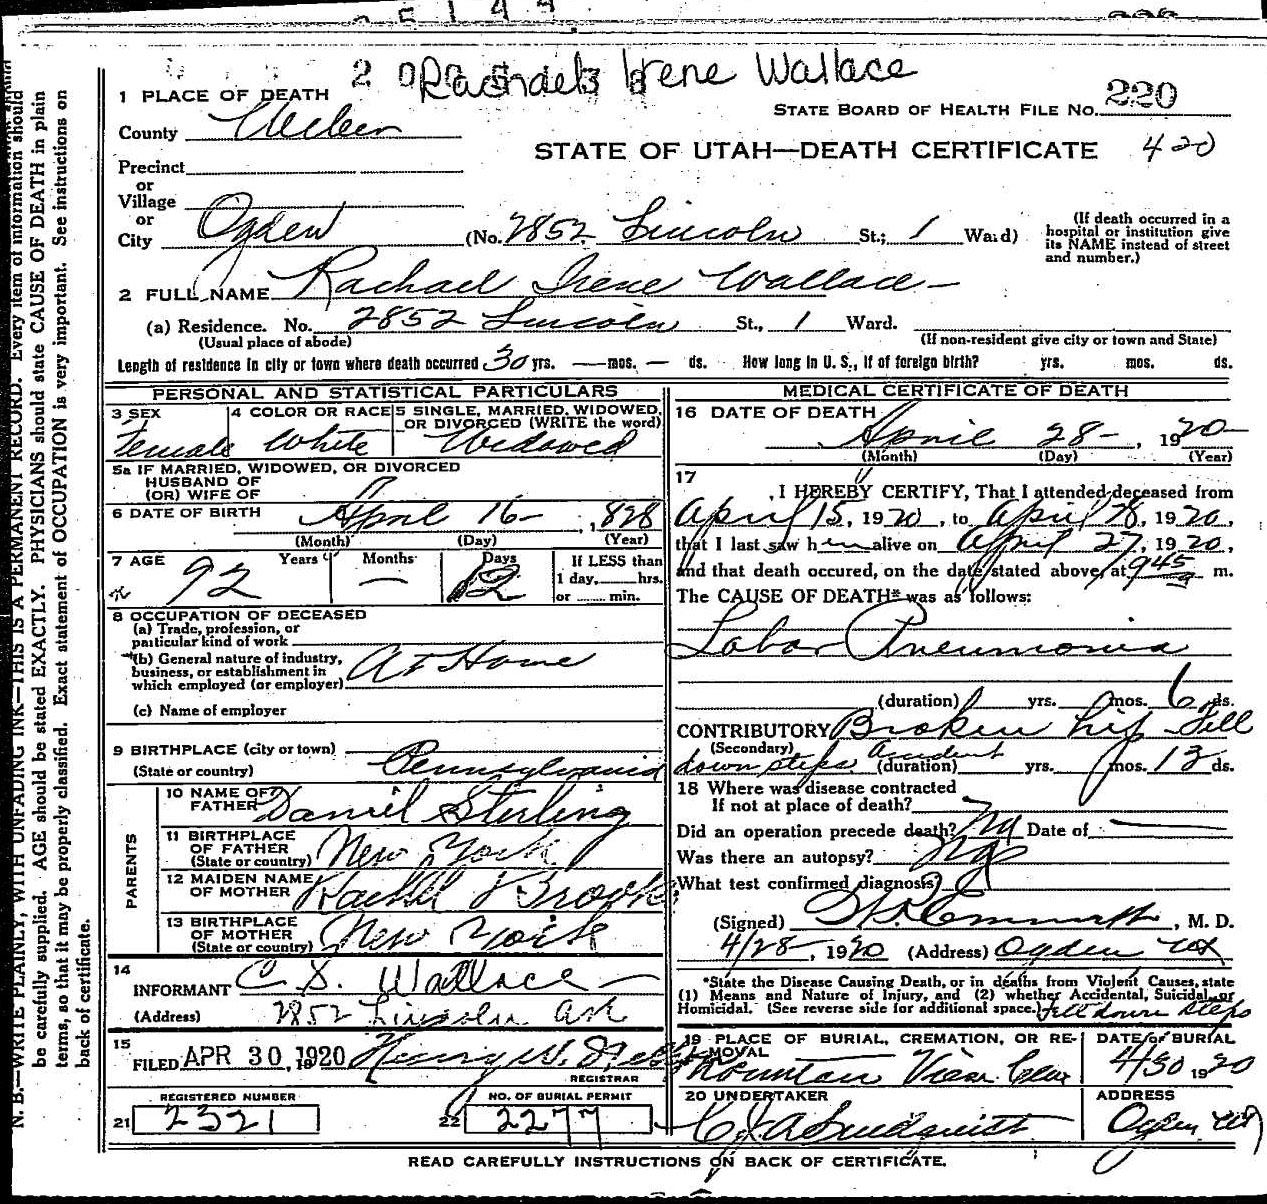 Rachael Irene Wallace
1 PLACE OF DEATH
STATE BOARD OF HEALTH FILE No. 220
County Weber
STATE OF UTAH—DEATH CERTIFICATE 420
Precinct
or
Village
or
City Ogden (No. 2852 Lincoln St.; 1 Ward)
(If death occurred in a hospital or institution give its NAME instead of street and number.)
2 FULL NAME Rachael Irene Wallace
(a) Residence. No. 2852 Lincoln St., 1 Ward.
(Usual place of abode) (If non-resident give city or town and State)
Length of residence in city or town where death occurred 30 yrs. — mos. — ds. How long in U. S., if of foreign birth? yrs. mos. ds.
PERSONAL AND STATISTICAL PARTICULARS
3 SEX Female
4 COLOR OR RACE White
5 SINGLE, MARRIED, WIDOWED, OR DIVORCED (WRITE the word) Widowed
5a IF MARRIED, WIDOWED, OR DIVORCED
HUSBAND OF
(OR) WIFE OF
6 DATE OF BIRTH April 16 - , 1828
(Month) (Day) (Year)
7 AGE 92 Years — Months 12 Days
If LESS than
1 day, hrs.
or min.
8 OCCUPATION OF DECEASED
(a) Trade, profession, or
particular kind of work
(b) General nature of industry,
business, or establishment in
which employed (or employer) At Home
(c) Name of employer
9 BIRTHPLACE (city or town)
(State or country) Pennsylvania
PARENTS
10 NAME OF FATHER Daniel Sterling
11 BIRTHPLACE OF FATHER (State or country) New York
12 MAIDEN NAME OF MOTHER Rachel Brooks
13 BIRTHPLACE OF MOTHER (State or country) New York
14
INFORMANT C. S. Wallace
(Address) 2852 Lincoln Ave
15
FILED APR 30, 1920 Henry W.
REGISTRAR
REGISTERED NUMBER
21 2321
NO. OF BURIAL PERMIT
22 2277
MEDICAL CERTIFICATE OF DEATH
16 DATE OF DEATH
April 28 - , 1920
(Month) (Day) (Year)
17
, I HEREBY CERTIFY, That I attended deceased from
April 15, 1920, to April 28, 1920,
that I last saw her alive on April 27, 1920,
and that death occured, on the date stated above, at 945 a m.
The CAUSE OF DEATH* was as follows:
Lobar Pneumonia
(duration) yrs. mos. 6 ds.
CONTRIBUTORY Broken hip - Fell
(Secondary)
down steps Accident (duration) yrs. mos. 13 ds.
18 Where was disease contracted
If not at place of death?
Did an operation precede death? No Date of —
Was there an autopsy? No
What test confirmed diagnosis?
(Signed) , M. D.
4/28 , 1920 (Address) Ogden Ut
*State the Disease Causing Death, or in deaths from Violent Causes, state
(1) Means and Nature of Injury, and (2) whether Accidental, Suicidal, or
Homicidal. (See reverse side for additional space.) Fell down steps
19 PLACE OF BURIAL, CREMATION, OR REMOVAL
Mountain View Cem
DATE OF BURIAL
4/30 1920
20 UNDERTAKER
ADDRESS
Ogden Ut
READ CAREFULLY INSTRUCTIONS ON BACK OF CERTIFICATE.
N. B.—WRITE PLAINLY, WITH UNFADING INK—THIS IS A PERMANENT RECORD. Every item of information should
be carefully supplied. AGE should be stated EXACTLY. PHYSICIANS should state CAUSE OF DEATH in plain
terms, so that it may be properly classified. Exact statement of OCCUPATION is very important. See instructions on
back of certificate.